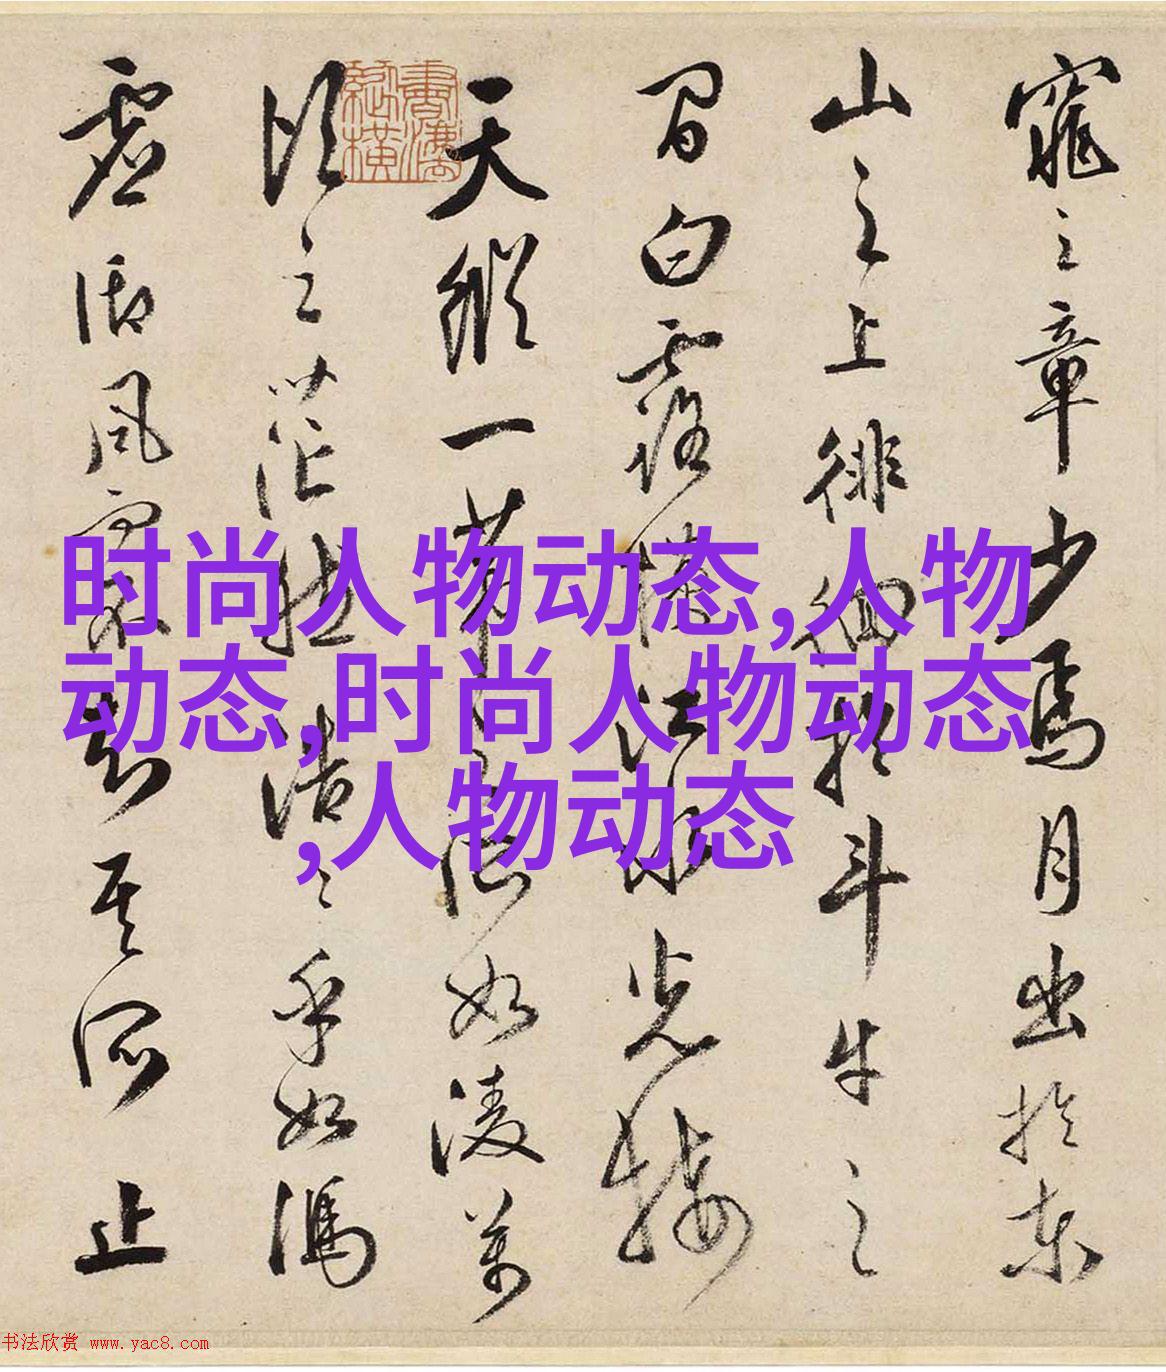 窕之章少焉月出於東
山之上徘徊於斗牛之
間白露横江水光接
天縱一葦之所如淩萬
頃之茫然浩〻乎如馮
虚御風而不知其所止
时尚人物动态,人物
动态,时尚人物动态
,人物动态
书法欣赏 www.yac8.com